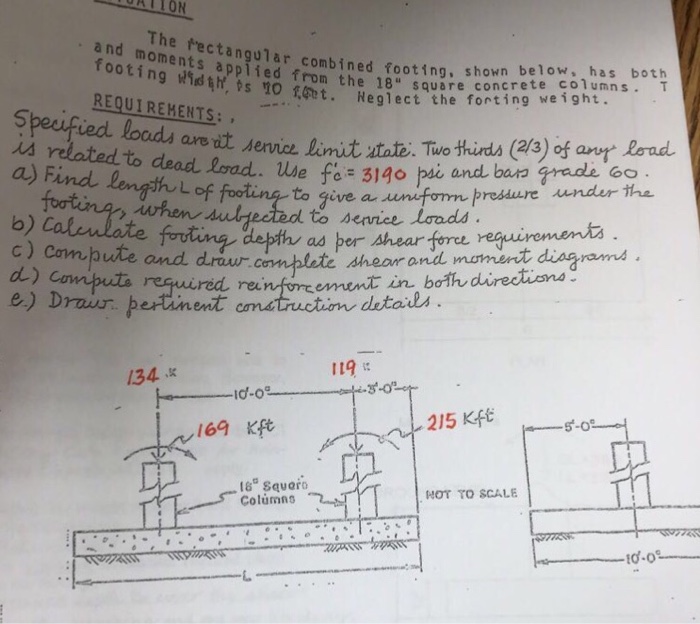 The rectangular combined footing, shown below, has both
and moments applied from the 18" square concrete columns. T
footing width, is 10 feet. Neglect the footing weight.
REQUIREMENTS:
Specified loads are at service limit state. Two thirds (2/3) of any load
is related to dead load. Use f'c = 3190 psi and bars grade 60.
a) Find length L of footing to give a uniform pressure under the
footing, when subjected to service loads.
b) Calculate footing depth as per shear force requirements.
c) Compute and draw complete shear and moment diagrams.
d) Compute required reinforcement in both directions.
e) Draw pertinent construction details.
134 K
119 K
10'-0"
3'-0"
169 Kft
215 Kft
5'-0"
18" Square
Columns
NOT TO SCALE
10'-0"
L